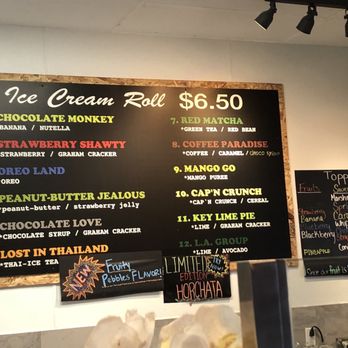 Ice Cream Roll $6.50
CHOCOLATE MONKEY
BANANA / NUTELLA
STRAWBERRY SHAWTY
STRAWBERRY / GRAHAM CRACKER
OREO LAND
OREO
PEANUT-BUTTER JEALOUS
*peanut-butter / strawberry jelly
CHOCOLATE LOVE
*CHOCOLATE SYRUP / GRAHAM CRACKER
LOST IN THAILAND
*THAI-ICE TEA
7. RED MATCHA
*GREEN TEA / RED BEAN
8. COFFEE PARADISE
*COFFEE / CARAMEL / CHOCO SYRUP
9. MANGO GO
*MANGO PUREE
10. CAP'N CRUNCH
*CAP'N CRUNCH / CEREAL
11. KEY LIME PIE
*LIME / GRAHAM CRACKER
12. L.A. GROUP
*LIME / AVOCADO
NEW
Fruity
Pebbles FLAVOR!
LIMITED
EDITION
HORCHATA
Topp
Fruits
Strawberry
Banana
Blueberry
Blackberry
Pineapple